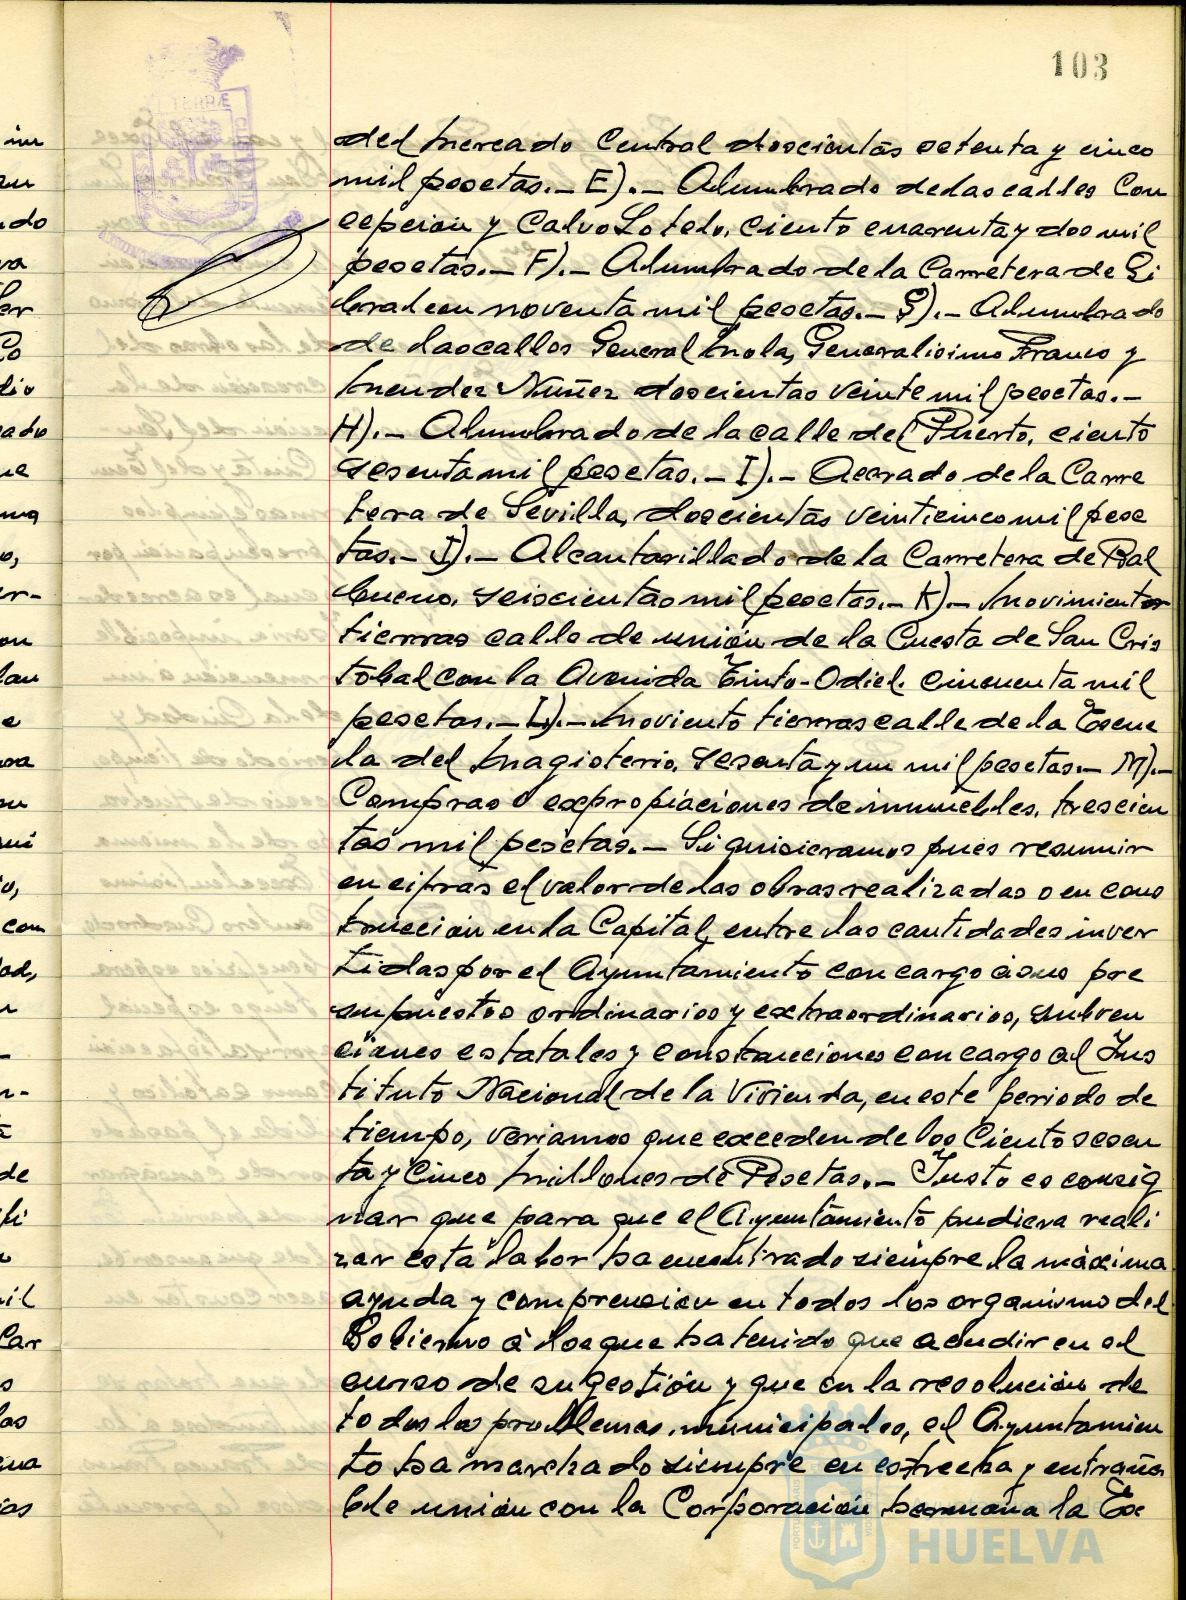 103
del Mercado Central doscientas setenta y cinco
mil pesetas.- E).- Alumbrado de las calles Con
cepción y Calvo Sotelo, ciento cuarenta y dos mil
pesetas.- F).- Alumbrado de la Carretera de Gi
braleon noventa mil pesetas.- G).- Alumbrado
de las calles General Mola, Generalisimo Franco y
Mendez Nuñez doscientas veinte mil pesetas.-
H).- Alumbrado de la calle del Puerto, ciento
sesenta mil pesetas.- I).- Acerado de la Carre
tera de Sevilla, doscientas veinticinco mil pese
tas.- J).- Alcantarillado de la Carretera de Bal
bueno, seiscientas mil pesetas.- K).- Movimientos
tierras calle de unión de la Cuesta de San Cris
tobal con la Avenida Tinto-Odiel. cincuenta mil
pesetas.- L).- Moviento tierras calle de la Escue
la del Magisterio, sesenta y un mil pesetas.- M).-
Compras o expropiaciones de inmuebles, trescien
tas mil pesetas.- Si quisieramos pues resumir
en cifras el valor de las obras realizadas o en cons
trucción en la Capital, entre las cantidades inver
tidas por el Ayuntamiento con cargo á sus pre
supuestos ordinarios y extraordinarios, subven
ciones estatales y construcciones con cargo al Ins
tituto Nacional de la Vivienda, en este periodo de
tiempo, veriamos que exceden de los Ciento sesen
ta y Cinco Millones de Pesetas.- Justo es consig
nar que para que el Ayuntamiento pudiera reali
zar esta labor ha encontrado siempre la máxima
ayuda y comprension en todos los organismo del
Gobierno á los que ha tenido que acudir en el
curso de su gestión y que en la resolución de
todos los problemas municipales, el Ayuntamien
to ha marchado siempre en estrecha y entraña
ble unión con la Corporación hermana la Ex
HUELVA